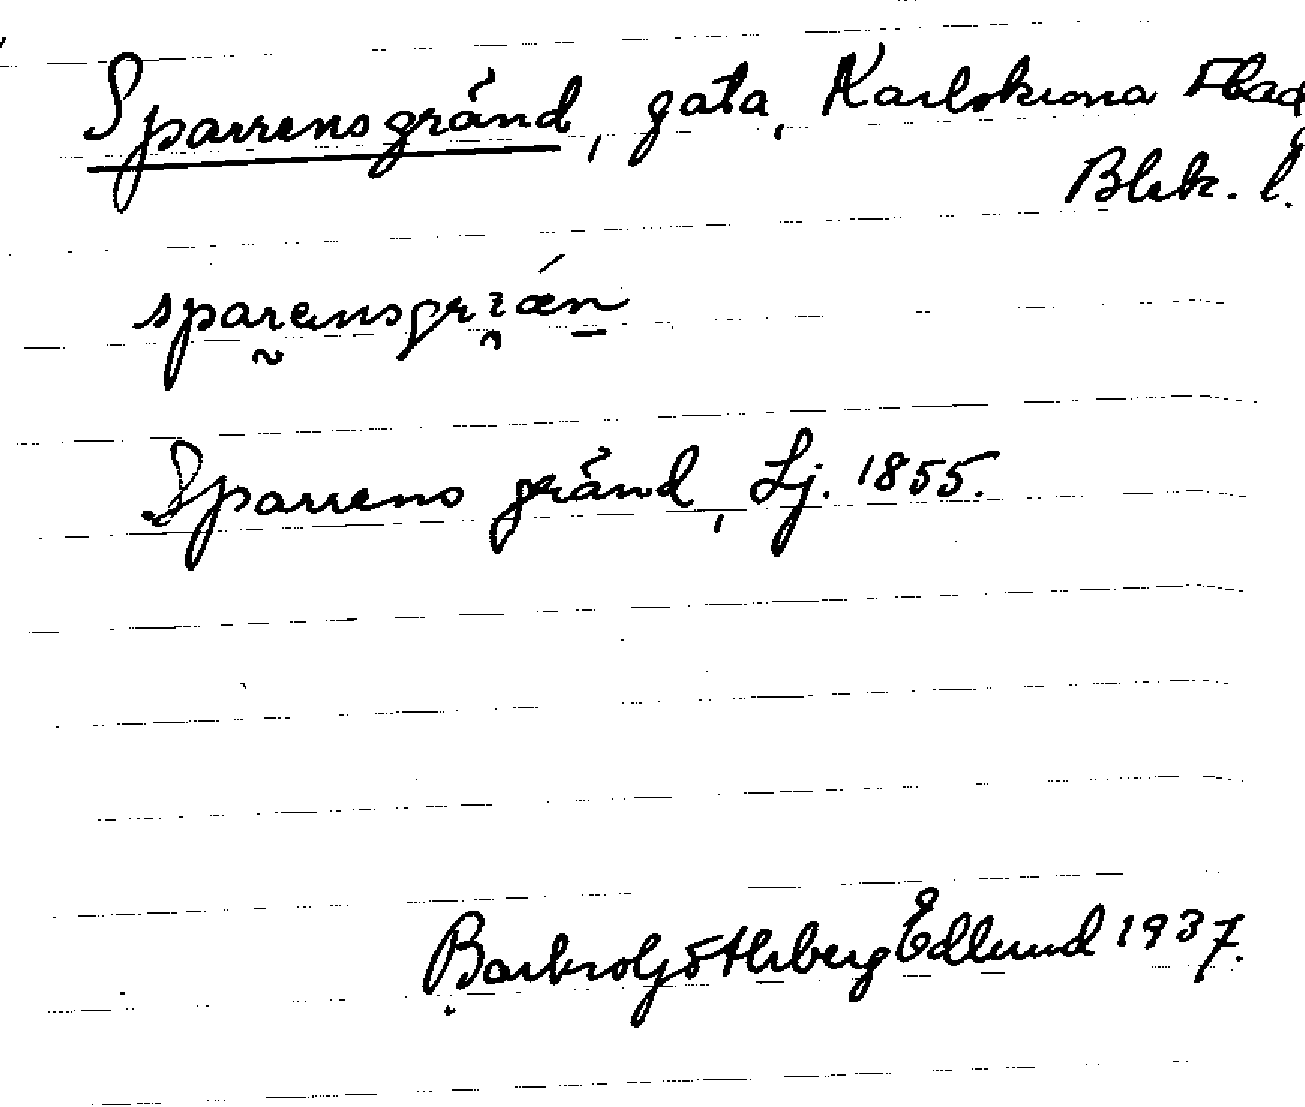 Sparrens gränd, gata, Karlskrona stad
Blek. l.
sparensgrän
Sparrens gränd, Lj. 1855.
Barbro Götlberg Edlund 1937.